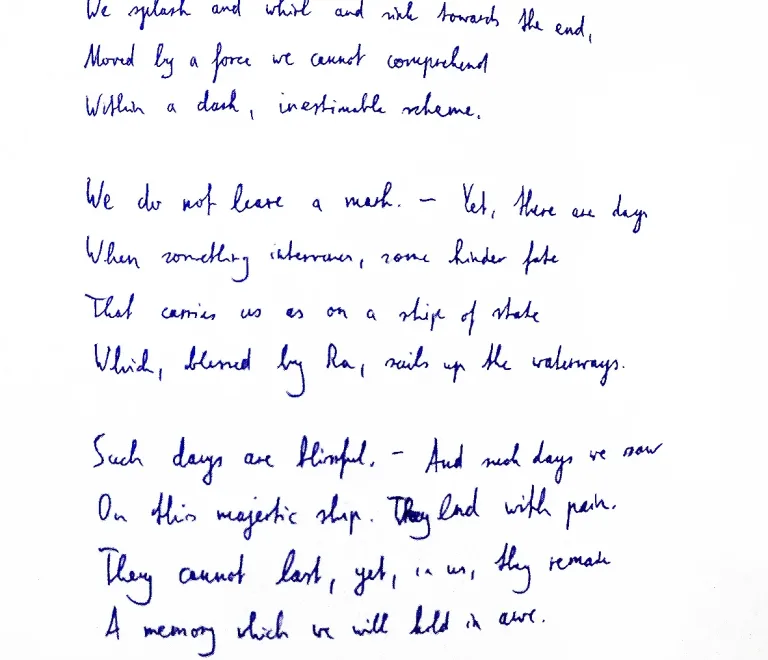 We splash and whirl and sink towards the end,
Moved by a force we cannot comprehend
Within a dark, inestimable scheme.
We do not leave a mark. – Yet, there are days
When something intervenes, some kinder fate
That carries us as on a ship of state
Which, blessed by Ra, sails up the waterways.
Such days are blissful. – And such days we saw
On this majestic ship. They end with pain.
They cannot last, yet, in us, they remain
A memory which we will hold in awe.